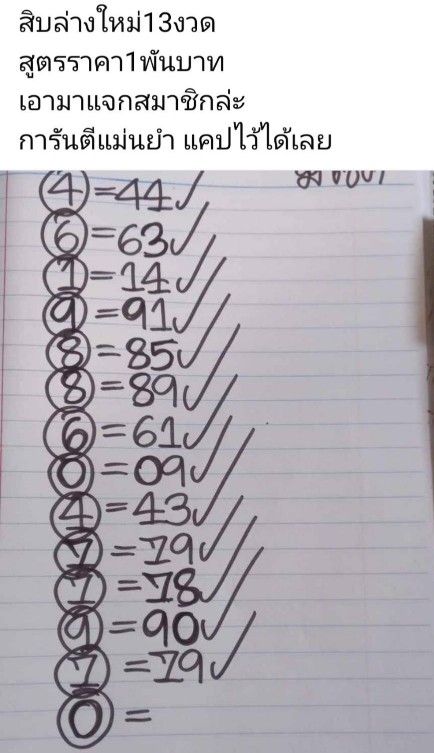 สิบล่างใหม่13งวด
สูตรราคา1พันบาท
เอามาแจกสมาชิกล่ะ
การันตีแม่นยำ แคปไว้ได้เลย
4=44✓
6=63✓
1=14✓
9=91✓
8=85✓
8=89✓
6=61✓
0=09✓
4=43✓
7=79✓
7=78✓
9=90✓
7=79✓
0=